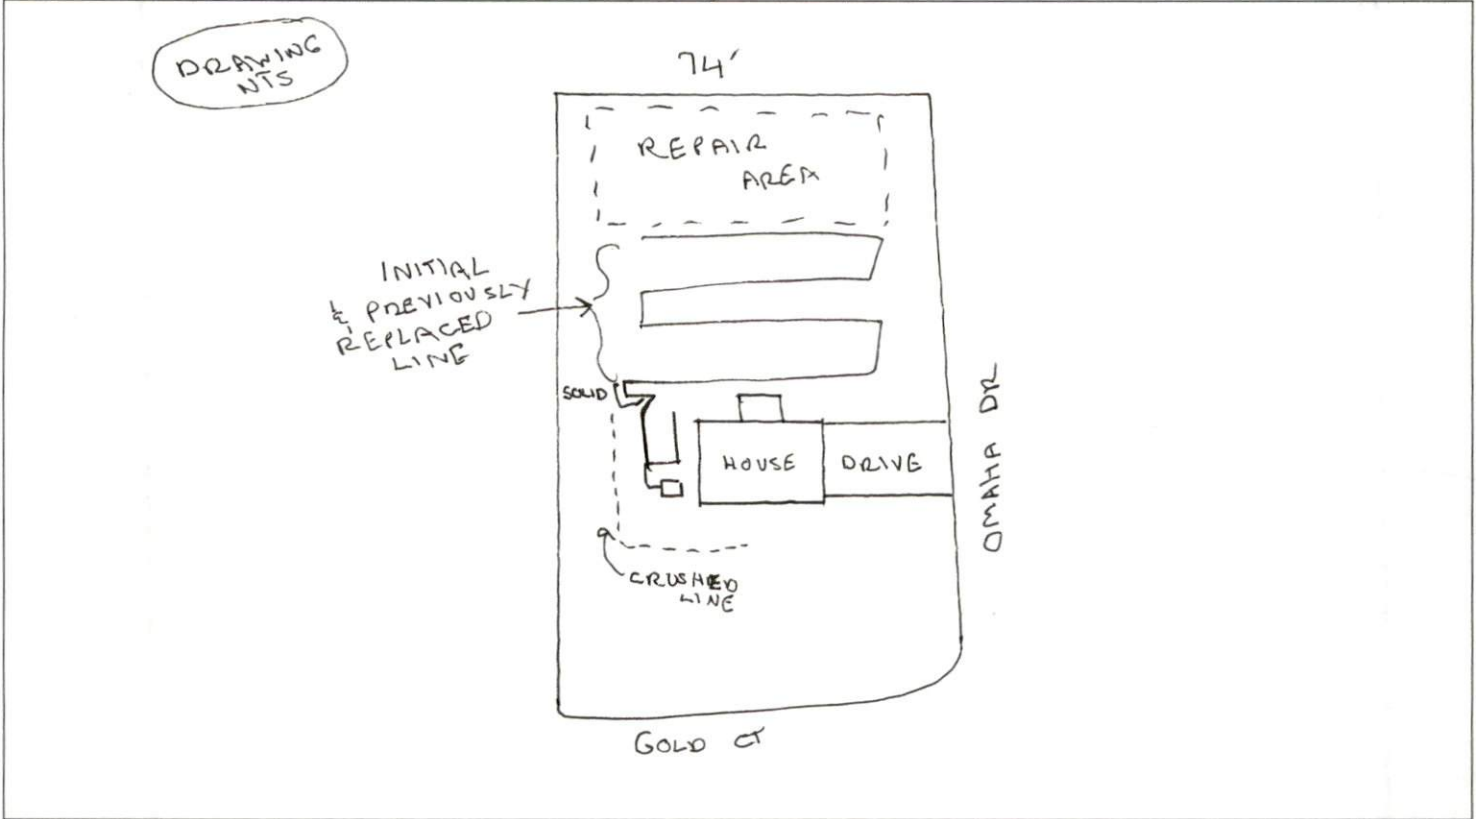 DRAWING
NTS
74'
REPAIR
AREA
INITIAL
& PREVIOUSLY
REPLACED
LINE
SOLID
HOUSE
DRIVE
OMAHA DR
CRUSHED
LINE
GOLD CT